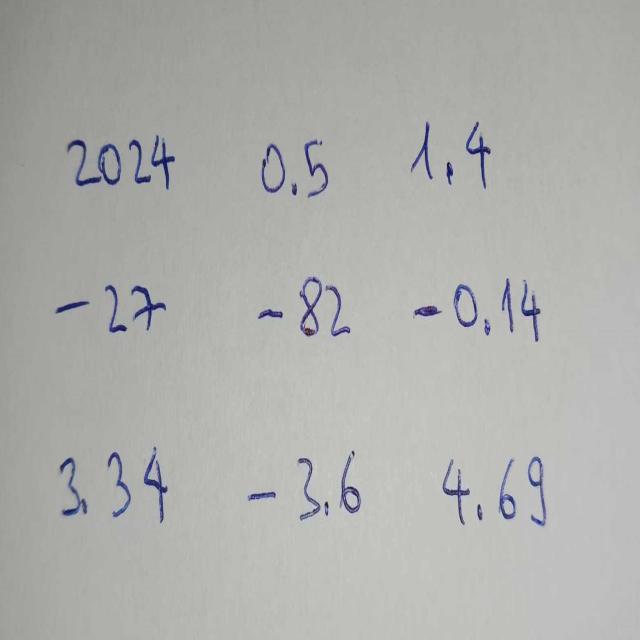 2024 0.5 1.4
-27 -82 -0.14
3.34 -3.6 4.69